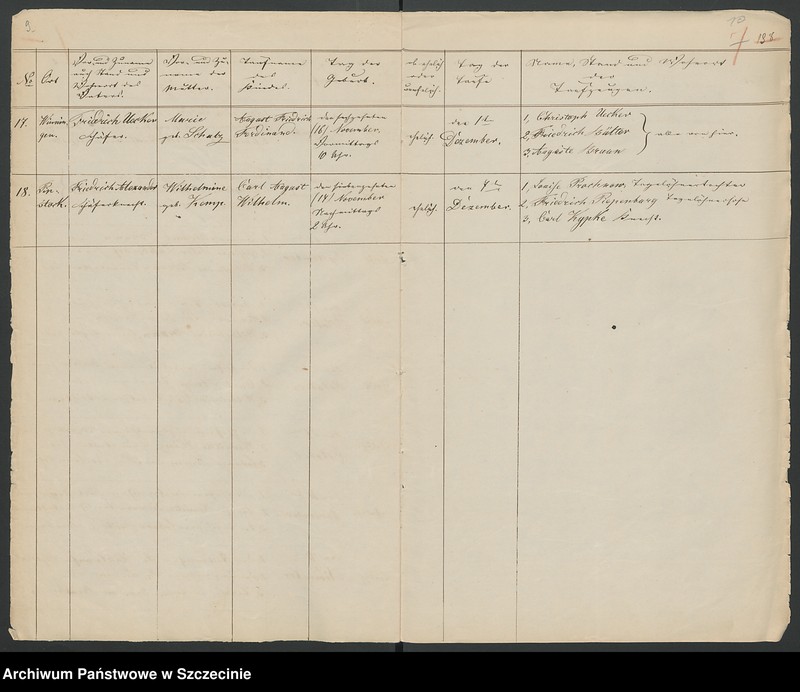 3.
10
7 138
No
Ort
Vor- und Zuname
auch Stand und
Wohnort des
Vaters.
Vor- und Zu-
name der
Mutter.
Taufname
des
Kindes.
Tag der
Geburt.
ob ehelich
oder
unehelich.
Tag der
Taufe
Name, Stand und Wohnort
der
Taufzeugen.
17.
Friedrich Uecker
Schäfer.
Marie
geb. Schulz
August Friedrich
Ferdinand.
den sechszehnten
(16) November.
Vormittags
10 Uhr.
ehelich
den 1t
Dezember.
1, Christoph Uecker
2, Friedrich
3, Auguste
alle von hier.
18.
Friedrich Alexander
Schäferknecht.
Wilhelmine
geb. Kemp.
Carl August
Wilhelm.
den
November
Nachmittags
2 Uhr.
ehelich.
den
Dezember.
1, Louise Prochnow, Tagelöhnertochter
2, Friedrich Piepenburg Tagelöhnersohn
3, Carl Zypke Knecht.
Archiwum Państwowe w Szczecinie